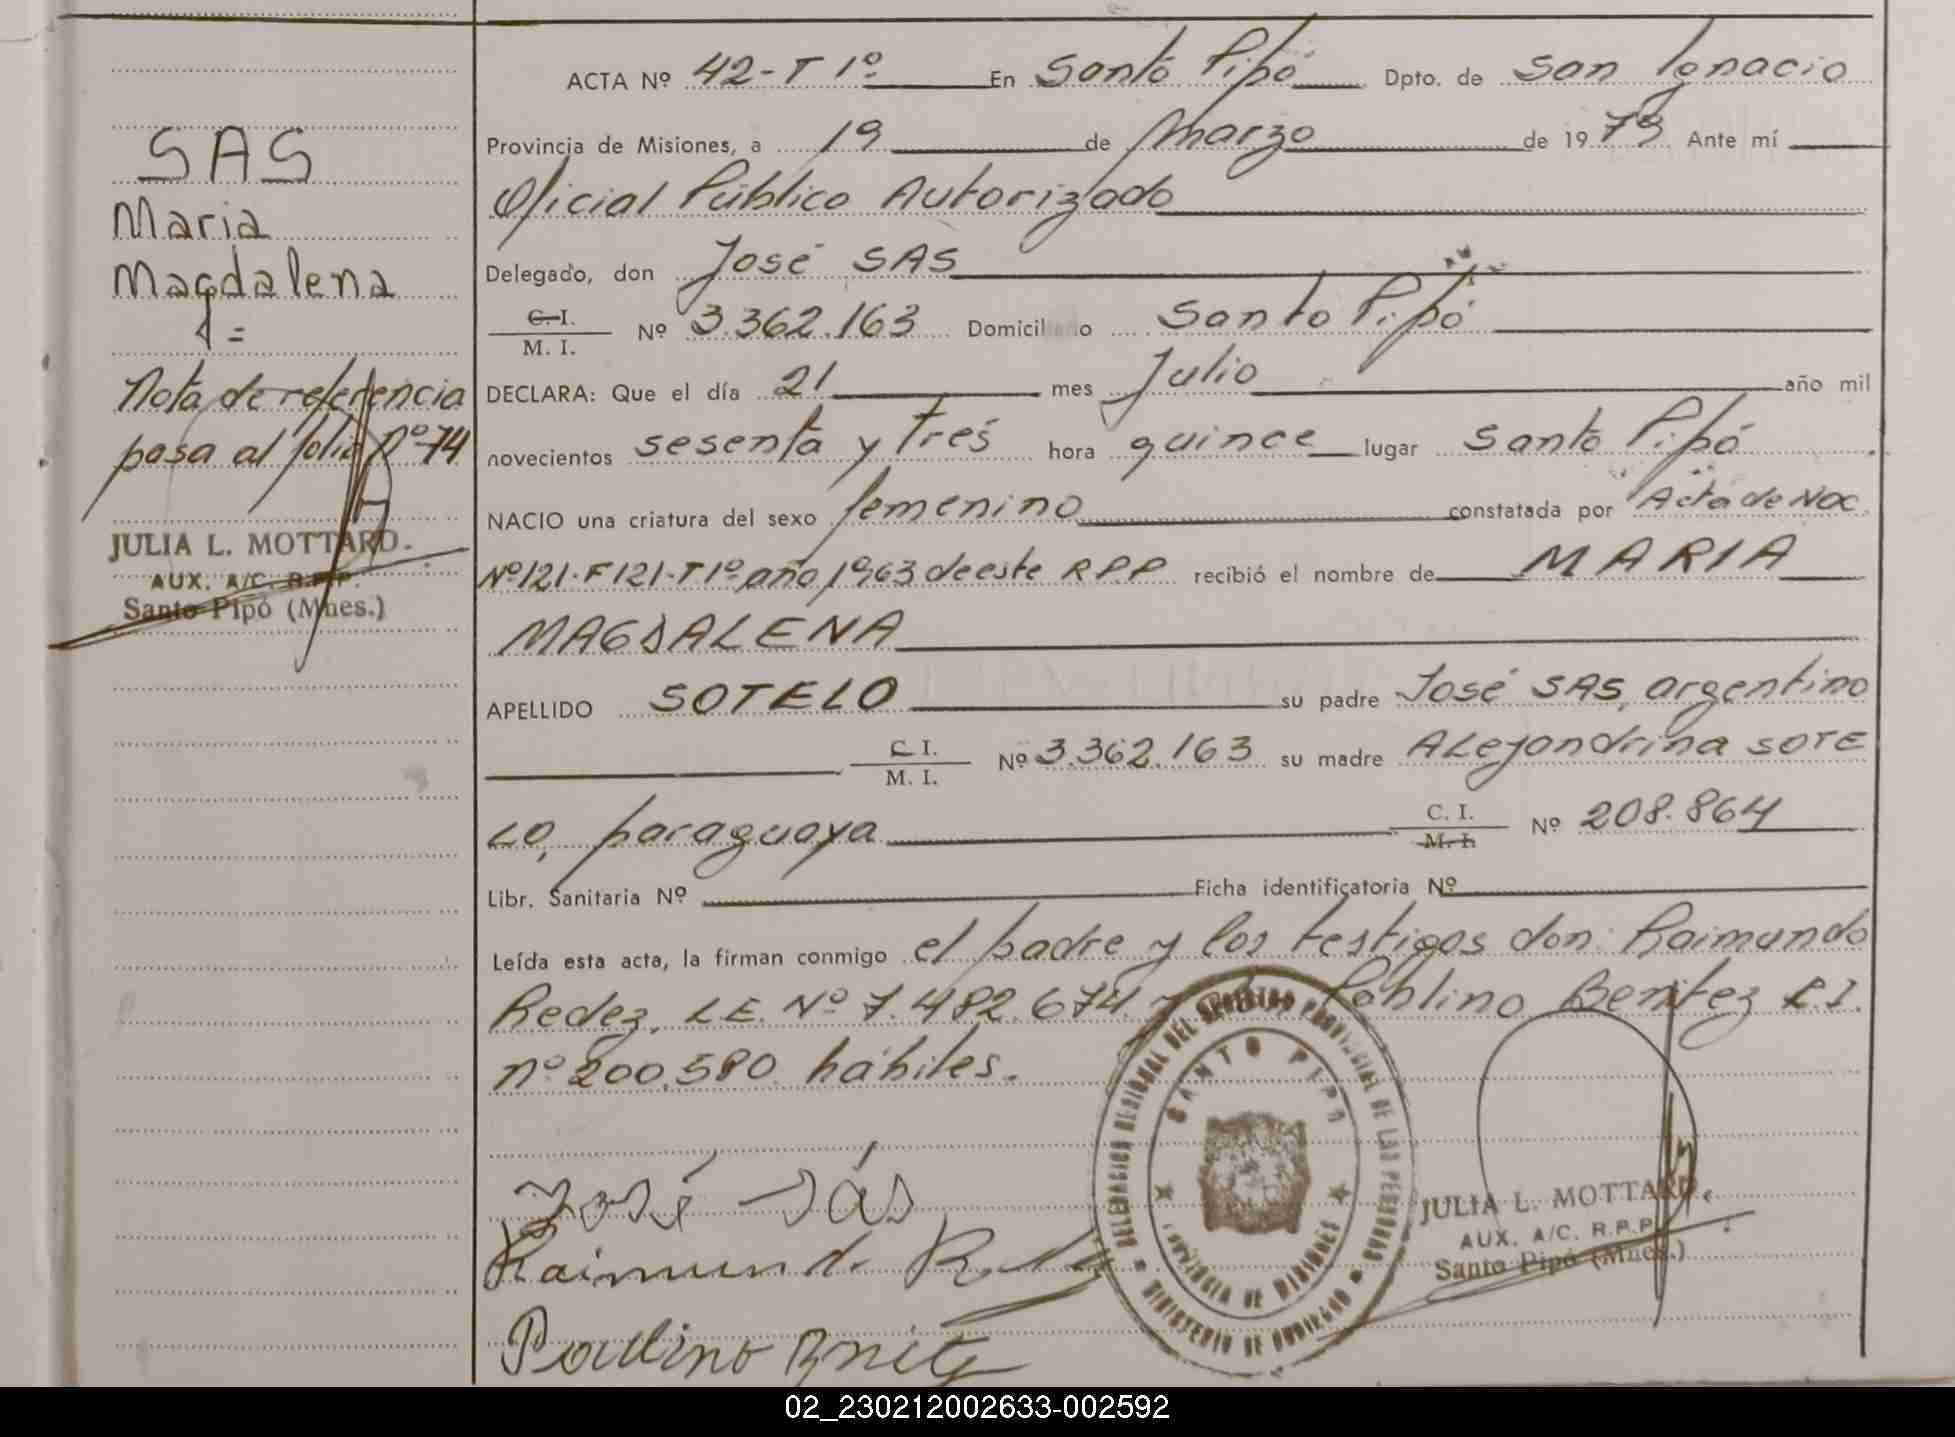 ACTA Nº 42-T 1º En Santo Pipó Dpto. de San Ignacio
Provincia de Misiones, a 19 de Marzo de 1973 Ante mí
Oficial Público Autorizado
Delegado, don José SAS
C. I. / M. I. Nº 3.362.163 Domiciliado Santo Pipó
DECLARA: Que el día 21 mes Julio año mil
novecientos sesenta y tres hora quince lugar Santo Pipó
NACIO una criatura del sexo femenino constatada por Acta de Nac.
Nº 121-F121-T1º año 1963 de este RPP recibió el nombre de MARIA
MAGDALENA
APELLIDO SOTELO su padre José SAS, argentino
C. I. / M. I. Nº 3.362.163 su madre Alejandrina SOTE
LO, paraguaya C. I. / M. I. Nº 208.864
Libr. Sanitaria Nº Ficha identificatoria Nº
Leída esta acta, la firman conmigo el padre y los testigos don: Raimundo
Redez, L.E. Nº 7.482.674 y Poblino Benitez C.I.
nº 200.580 hábiles.
José Sás
Raimundo
Paulino
SAS
Maria
Magdalena
Nota de referencia
pasa al folio nº 74
JULIA L. MOTTARD.
AUX. A/C. R.P.P.
Santo Pipó (Mnes.)
DELEGACION REGIONAL DEL REGISTRO PROVINCIAL DE LAS PERSONAS
MINISTERIO DE GOBIERNO
SANTO PIPO
PROVINCIA DE MISIONES
JULIA L. MOTTARD.
AUX. A/C. R.P.P.
Santo Pipó (Mnes.)
02_230212002633-002592